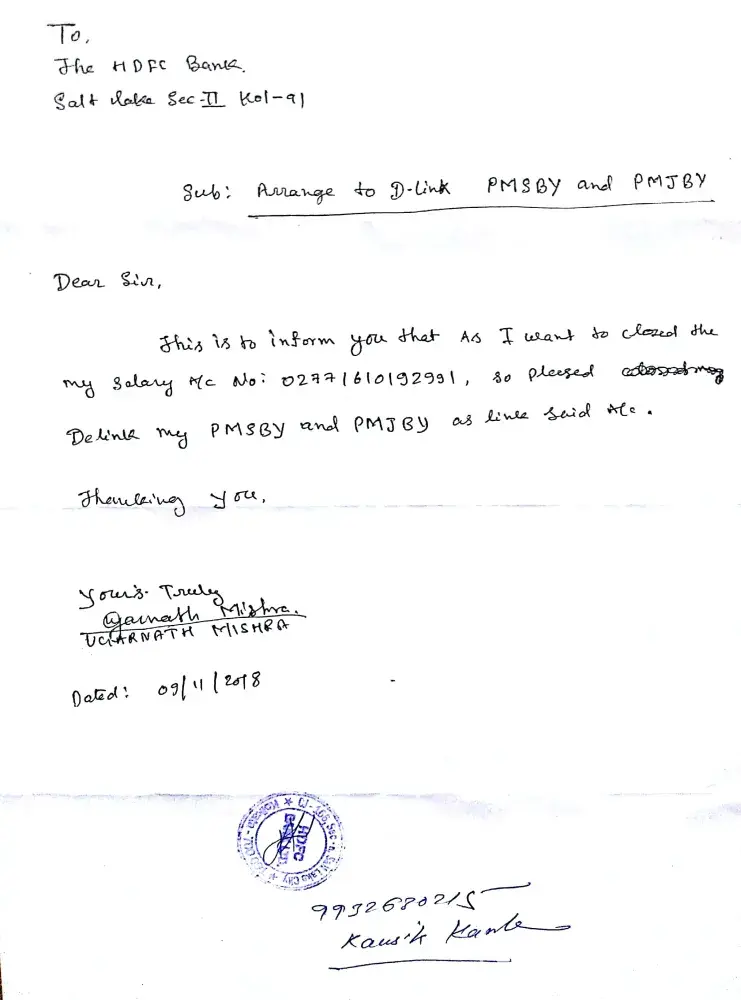 To,
The HDFC Bank.
Salt Lake Sec-II Kol-91
Sub: Arrange to D-link PMSBY and PMJBY
Dear Sir,
This is to inform you that As I want to closed the
my Salary A/c No: 02771610192991, so pleased
Delink my PMSBY and PMJBY as link said A/c.
Thanking you,
Your's Truly
Ugarnath Mishra.
UGARNATH MISHRA
Dated: 09/11/2018
HDFC
BANK
Salt Lake City
9932680215
Kausik